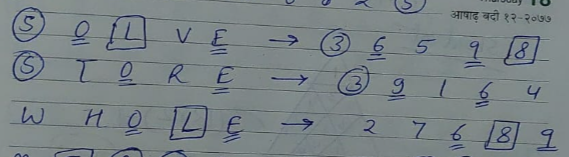 आषाढ़ बदी १२-२०७७
S O L V E → 3 6 5 9 8
S T O R E → 3 9 1 6 4
W H O L E → 2 7 6 8 9